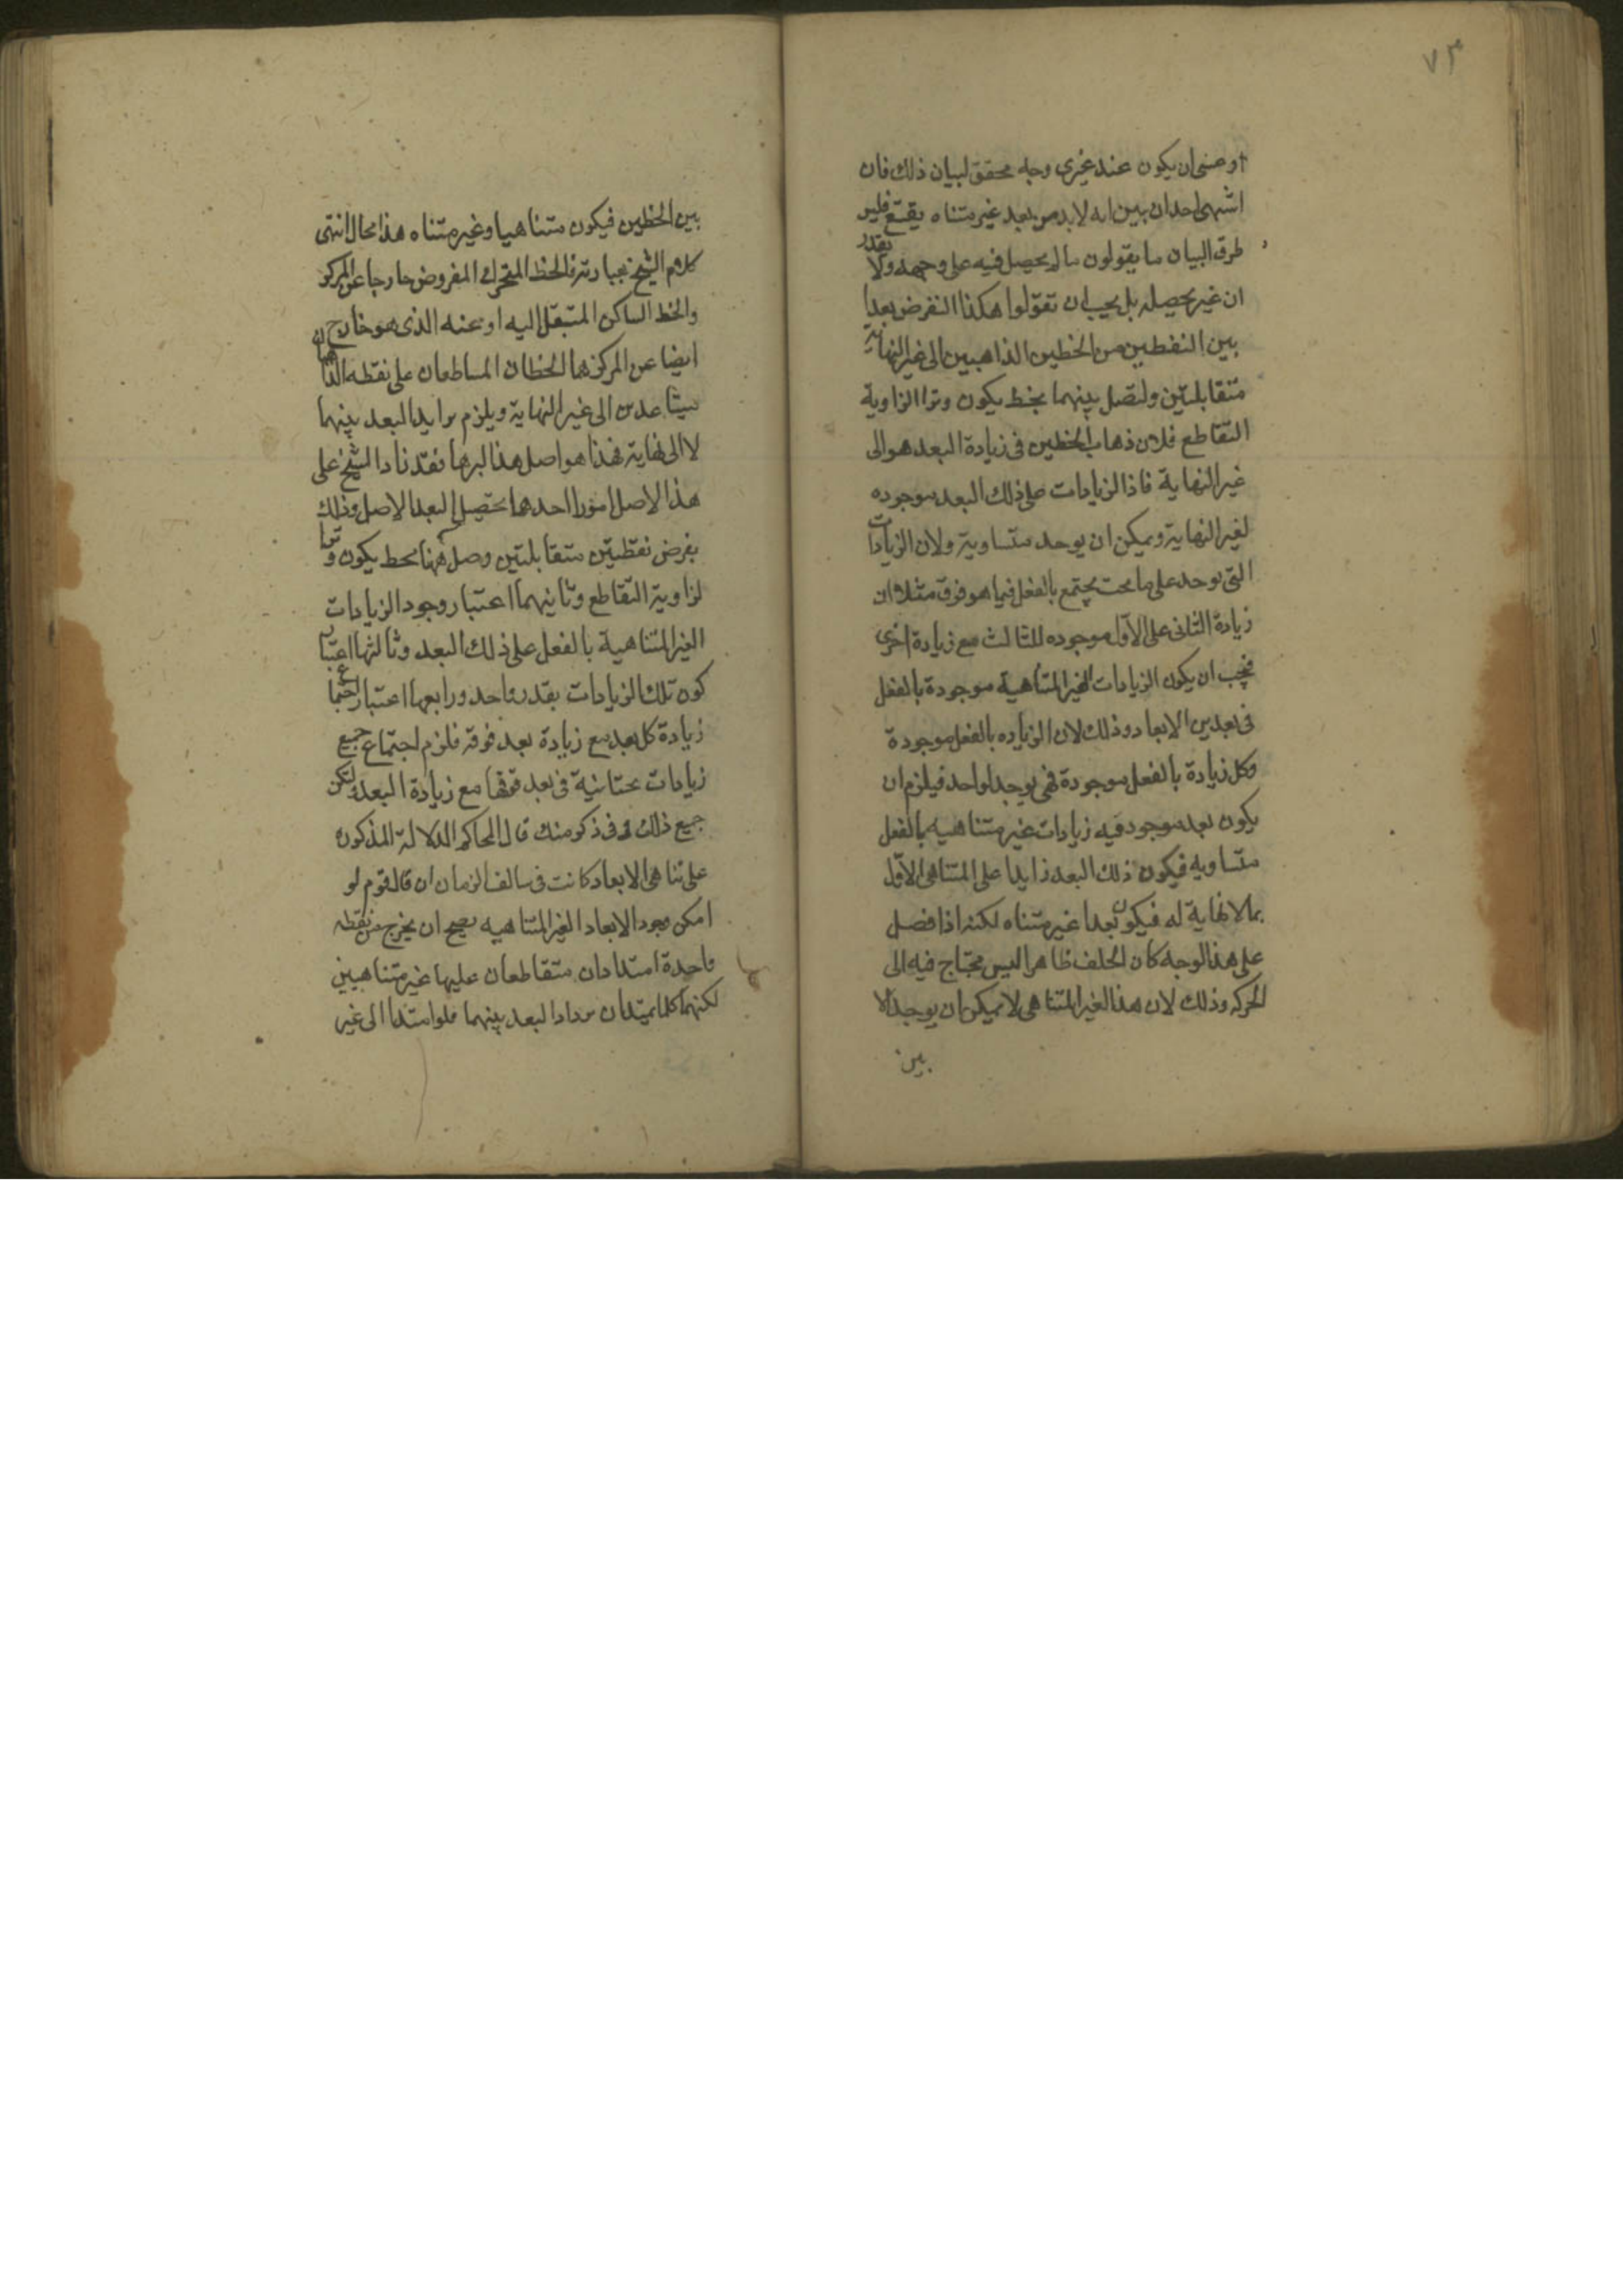 ٧٣
او عسى ان يكون عند غيرى وجه محقق لبيان ذلك فان
اشهى احد ان يبين انه لابد من بعد غير متناه يقتع فلير
طرق البيان ما يقولون ما لم يحصل فيه على وجهه ولا يقدر
ان غير يحصله بل يجب ان تقولوا هكذا النفرض بعدا
بين النقطين من الخطين الذاهبين الى غير النهاية
متقابلتين ولتصل بينهما بخط يكون وترا الزاوية
التقاطع فلان ذهاب الخطين فى زيادة البعد هو الى
غير النهاية فاذا الزيادات على ذلك البعد موجوده
لغير النهاية ويمكن ان يوحد متساوية ولان الزيادات
التى توحد على ما تحت يجتمع بالفعل فيما هو فوق مثلا ان
زيادة الثانى على الاول موجوده للثالث مع زيادة اخرى
فيجب ان يكون الزيادات الغير المتناهية موجودة بالفعل
فى بعد من الابعاد وذلك لان الزياده بالفعل موجودة
وكل زيادة بالفعل موجودة فهى يوجد لواحد فيلزم ان
يكون بعد موجود فيه زيادات غير متناهيه بالفعل
متساويه فيكون ذلك البعد زايدا على المتناهى الاول
بما لا نهاية له فيكون بعدا غير متناه لكنه اذا فصل
على هذا الوجه كان الخلف ظاهرا ليس محتاج فيه الى
الحركه وذلك لان هذا الغير المتناهى لا يمكن ان يوجد الا
بين
بين الخطين فيكون متناهيا وغير متناه هذا محال انتهى
كلام الشيخ بعبارته فالخط المتحرك المفروض خارجا عن المركز
والخط الساكن المتنقل اليه او عنه الذى هو خارج
ايضا عن المركز هما الخطان المساطعان على نقطه الذاهبان
سيتاعدين الى غير النهاية ويلزم تزايد البعد بينهما
لا الى نهاية فهذا هو اصل هذا البرهان فقد زاد الشيخ على
هذا الاصل امورا احدها تحصيل البعد الاصل وذلك
بفرض نقطتين متقابلتين وصل بينهما بخط يكون وترا
لزاوية التقاطع وثانيهما اعتبار وجود الزيادات
الغير المتناهية بالفعل على ذلك البعد وثالثها اعتبار
كون تلك الزيادات بقدر واحد ورابعها اعتبار اجتماع
زيادة كل بعد مع زيادة بعد فوقه فلزم اجتماع جميع
زيادات تحتانية فى بعد فوقها مع زيادة البعد ولكن
جميع ذلك فى ذكر منك قال المحاكم الدلالة المذكوره
على تناهى الابعاد كانت فى سالف الزمان ان قال قوم لو
امكن وجود الابعاد الغير المتناهيه يصح ان يخرج من نقطه
واحدة امتدادان متقاطعان عليها غير متناهيين
لكنهما كلما يمتدان يزداد البعد بينهما فلو امتدا الى غير